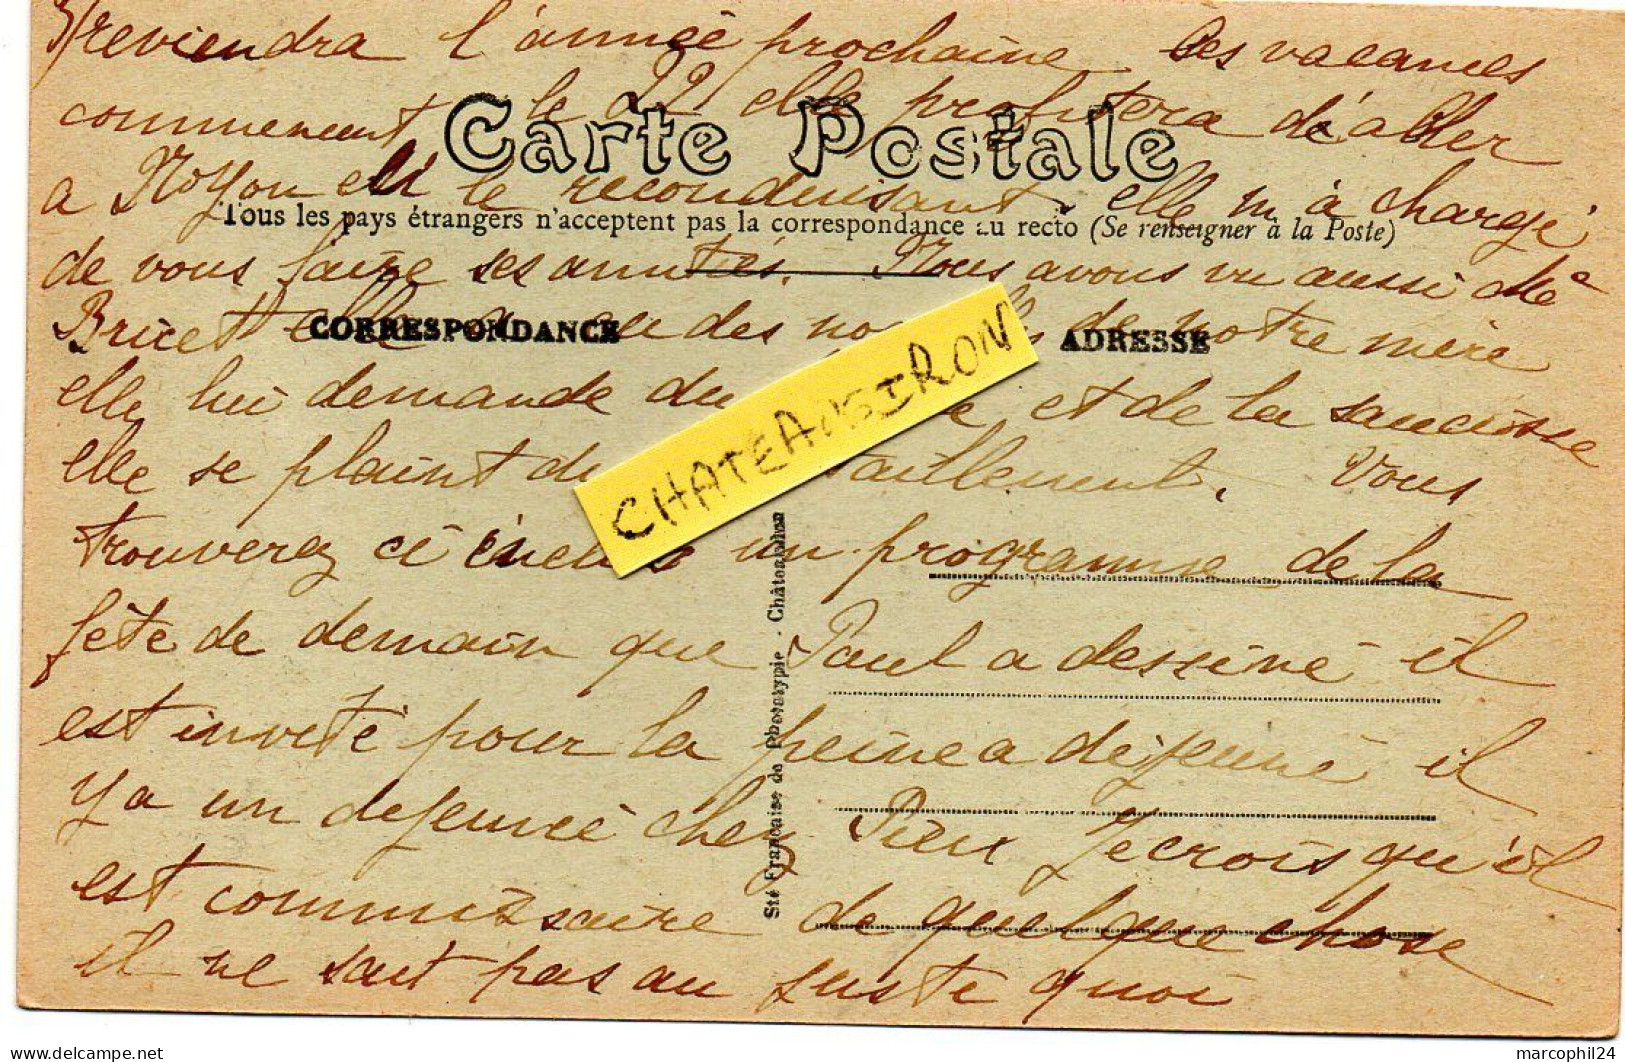 3/ reviendra l'année prochaine les vacances
commencent le 22 elle profitera de aller
Carte Postale
a Noyon en le reconduisant elle m à chargé
Tous les pays étrangers n'acceptent pas la correspondance au recto (Se renseigner à la Poste)
de vous faire ses amitiés. Nous avons vu aussi Me
Bricet elle a eu des de notre mère
CORRESPONDANCE ADRESSE
elle lui demande du et de la saucisse
elle se plaint du Vous
CHATEAUSIRON
trouverez ci inclus un programme de la
fête de demain que Paul a dessiné il
est invité pour la peine a déjeuné il
y a un dejeuné chez Pieux Je crois qu'il
est commissaire de quelque chose
il ne sait pas au juste quoi
Sté Française de Phototypie - Châteaudun
delcampe.net
marcophil24